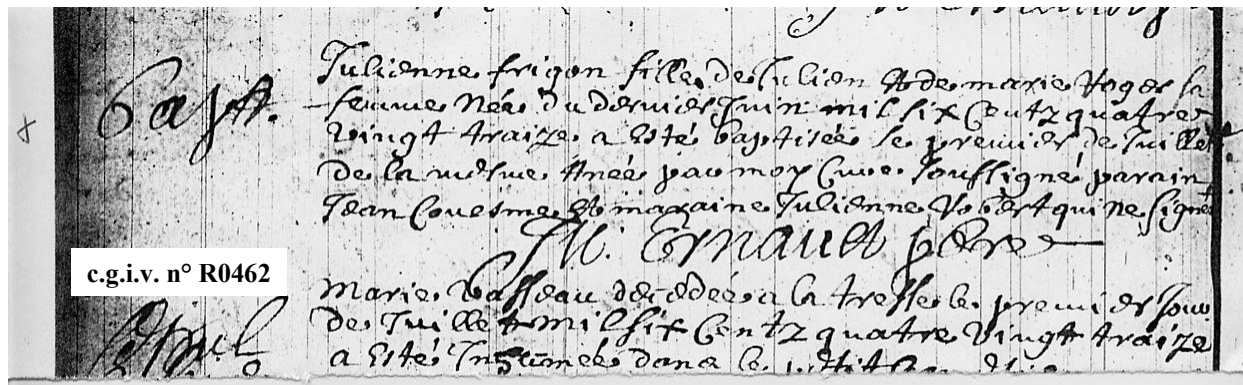 Bapt.
Julienne frigon fille de Julien et de marie Roger sa
femme Née du dernier Juin mil six Centz quatre
vingt traize a Esté baptisée le premier de Juillet
de la mesme Anée par moy Curé soussigné parain
Jean Couesme et maraine Julienne Robert qui ne signe
M. Ernault pbre
c.g.i.v. n° R0462
Marie décédée a la tresse le premier Jour
de Juillet mil six Centz quatre vingt traize
a Esté Inhumée dans le petit